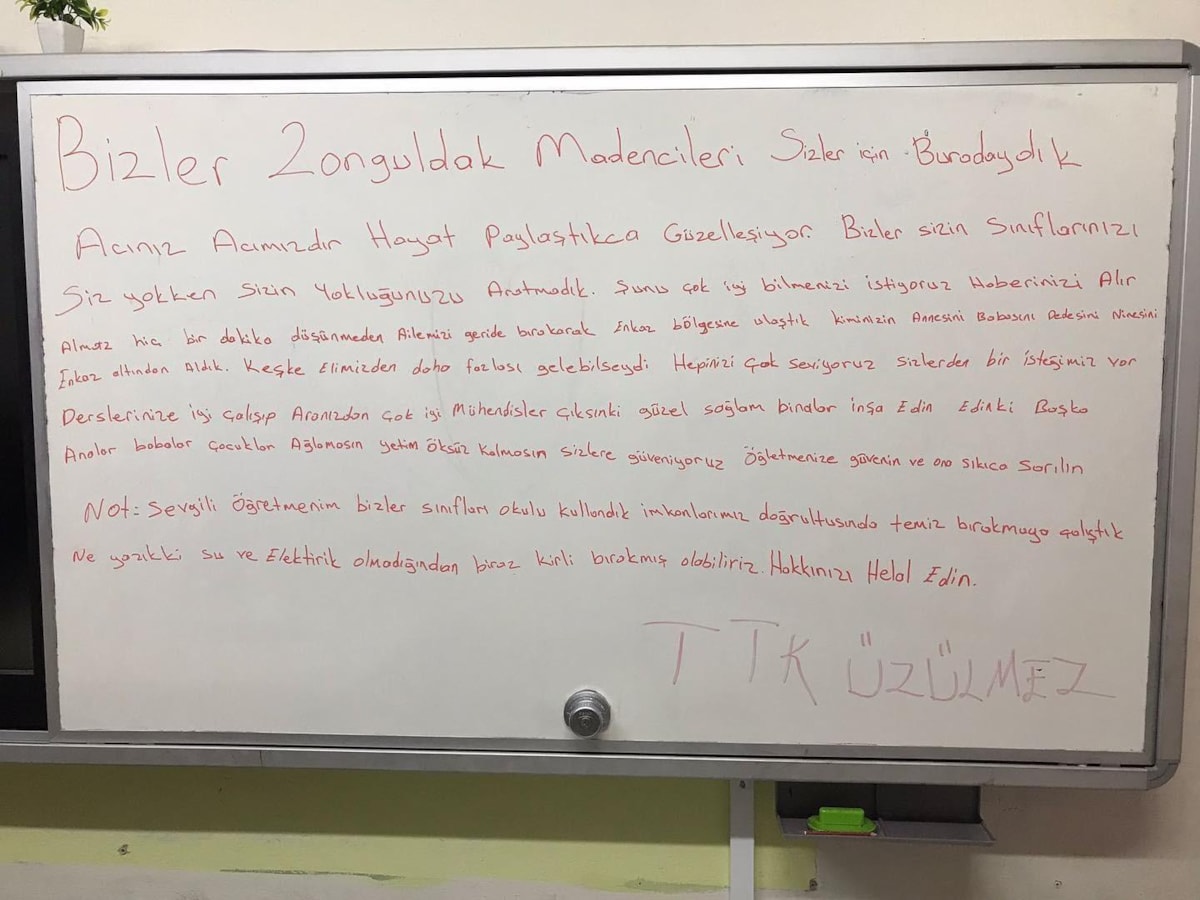 Bizler Zonguldak Madencileri Sizler için Buradaydık
Acınız Acımızdır Hayat Paylaştıkca Güzelleşiyor. Bizler sizin Sınıflarınızı
Siz yokken Sizin Yokluğunuzu Aratmadık. Şunu çok iyi bilmenizi istiyoruz Haberinizi Alır
Almaz hiç bir dakika düşünmeden Ailemizi geride bırakarak Enkaz bölgesine ulaştık kiminizin Annesini Babasını Dedesini Ninesini
Enkaz altından Aldık. Keşke Elimizden daha fazlası gelebilseydi Hepinizi Çok Seviyoruz Sizlerden bir isteğimiz var
Derslerinize iyi çalışıp Aranızdan Çok iyi Mühendisler Çıksınki güzel sağlam binalar inşa Edin Edinki Başka
Analar babalar çocuklar Ağlamasın yetim Öksüz Kalmasın Sizlere güveniyoruz Öğletmenize güvenin ve ona Sıkıca Sarılın
Not: Sevgili Öğretmenim bizler sınıfları okulu kullandık imkanlarımız doğrultusunda temiz bırakmaya çalıştık
Ne yazıkki su ve Elektirik olmadığından biraz kirli bırakmış olabiliriz. Hakkınızı Helal Edin.
TTK ÜZÜLMEZ